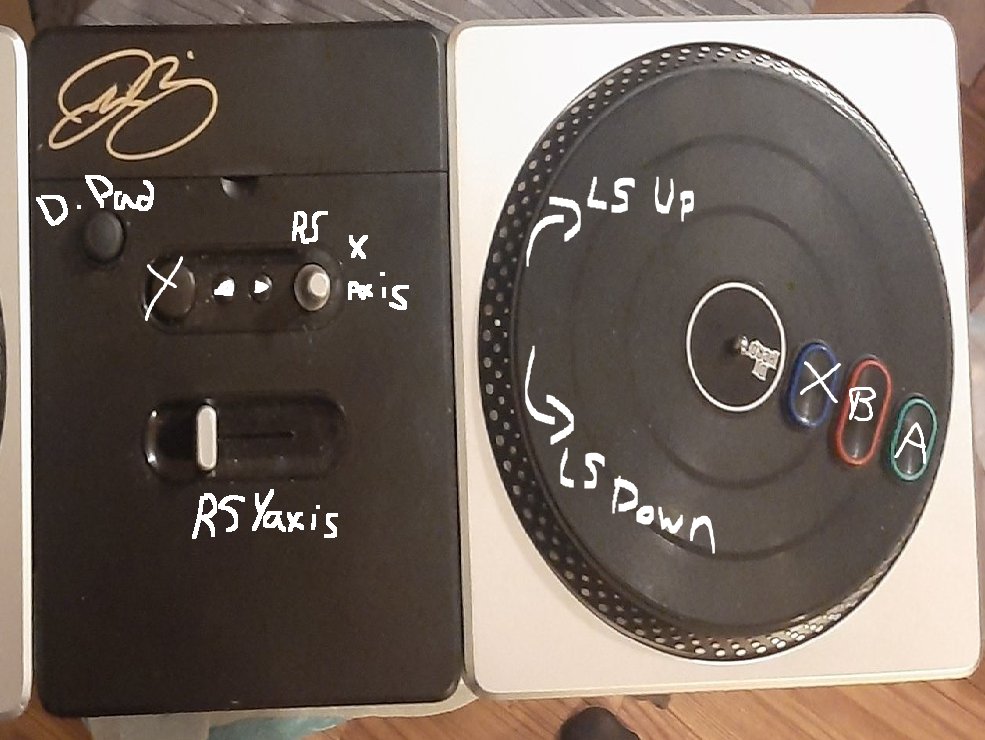 D. Pad
Y
RS X
Axis
RS Yaxis
LS Up
LS Down
X
B
A